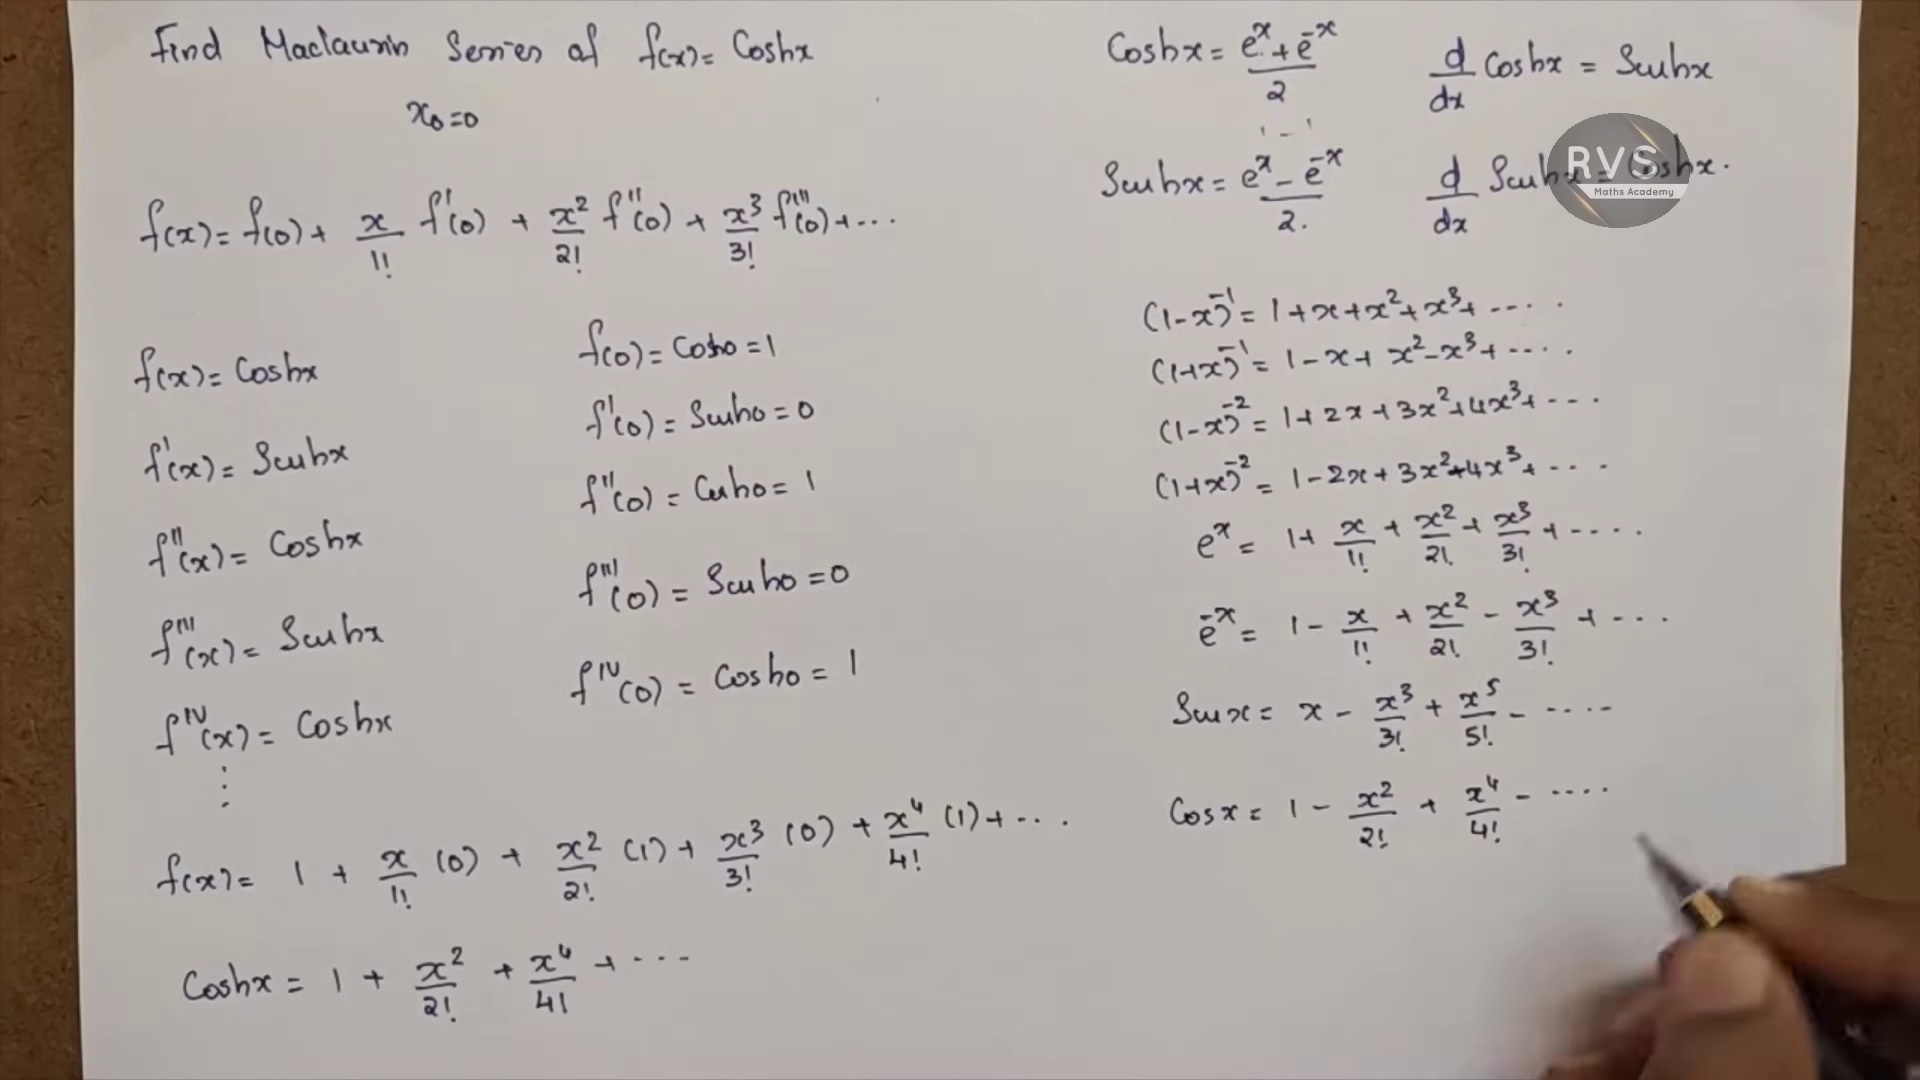 Find Maclaurin Series of f(x) = Coshx
x₀=0
f(x) = f(0) + x/1! f'(0) + x²/2! f''(0) + x³/3! f'''(0) + ...
f(x) = Coshx
f'(x) = Sinhx
f''(x) = Coshx
f'''(x) = Sinhx
f^IV(x) = Coshx
⋮
f(0) = Cosh0 = 1
f'(0) = Sinh0 = 0
f''(0) = Cosh0 = 1
f'''(0) = Sinh0 = 0
f^IV(0) = Cosh0 = 1
f(x) = 1 + x/1! (0) + x²/2! (1) + x³/3! (0) + x⁴/4! (1) + ...
Coshx = 1 + x²/2! + x⁴/4! + ...
Coshx = (e^x + e^-x)/2
d/dx Coshx = Sinhx
Sinhx = (e^x - e^-x)/2.
d/dx Sinhx = Coshx.
RVS
Maths Academy
(1-x)^-1 = 1+x+x²+x³+ ....
(1+x)^-1 = 1-x+x²-x³+ ....
(1-x)^-2 = 1+2x+3x²+4x³+ ...
(1+x)^-2 = 1-2x+3x²-4x³+ ....
e^x = 1 + x/1! + x²/2! + x³/3! + ....
e^-x = 1 - x/1! + x²/2! - x³/3! + ...
Sinx = x - x³/3! + x⁵/5! - ....
Cosx = 1 - x²/2! + x⁴/4! - ....